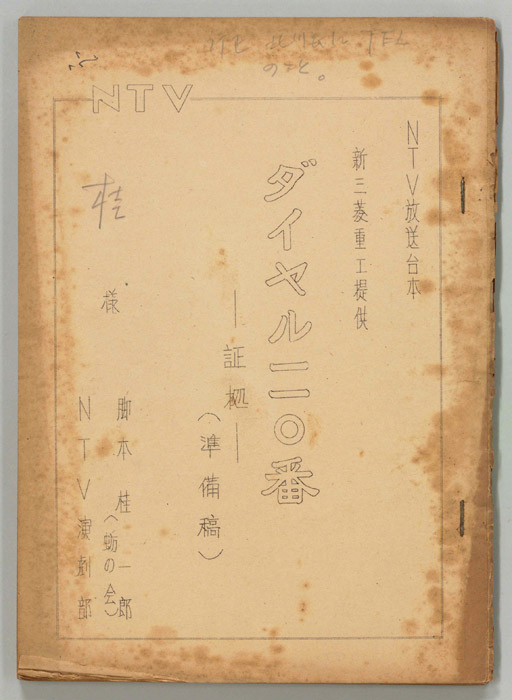 のこと。
NTV
NTV放送台本
新三菱重工提供
ダイヤル一一〇番
―証拠―
(準備稿)
桂
様
脚本 桂一郎
(蛎の会)
NTV演劇部